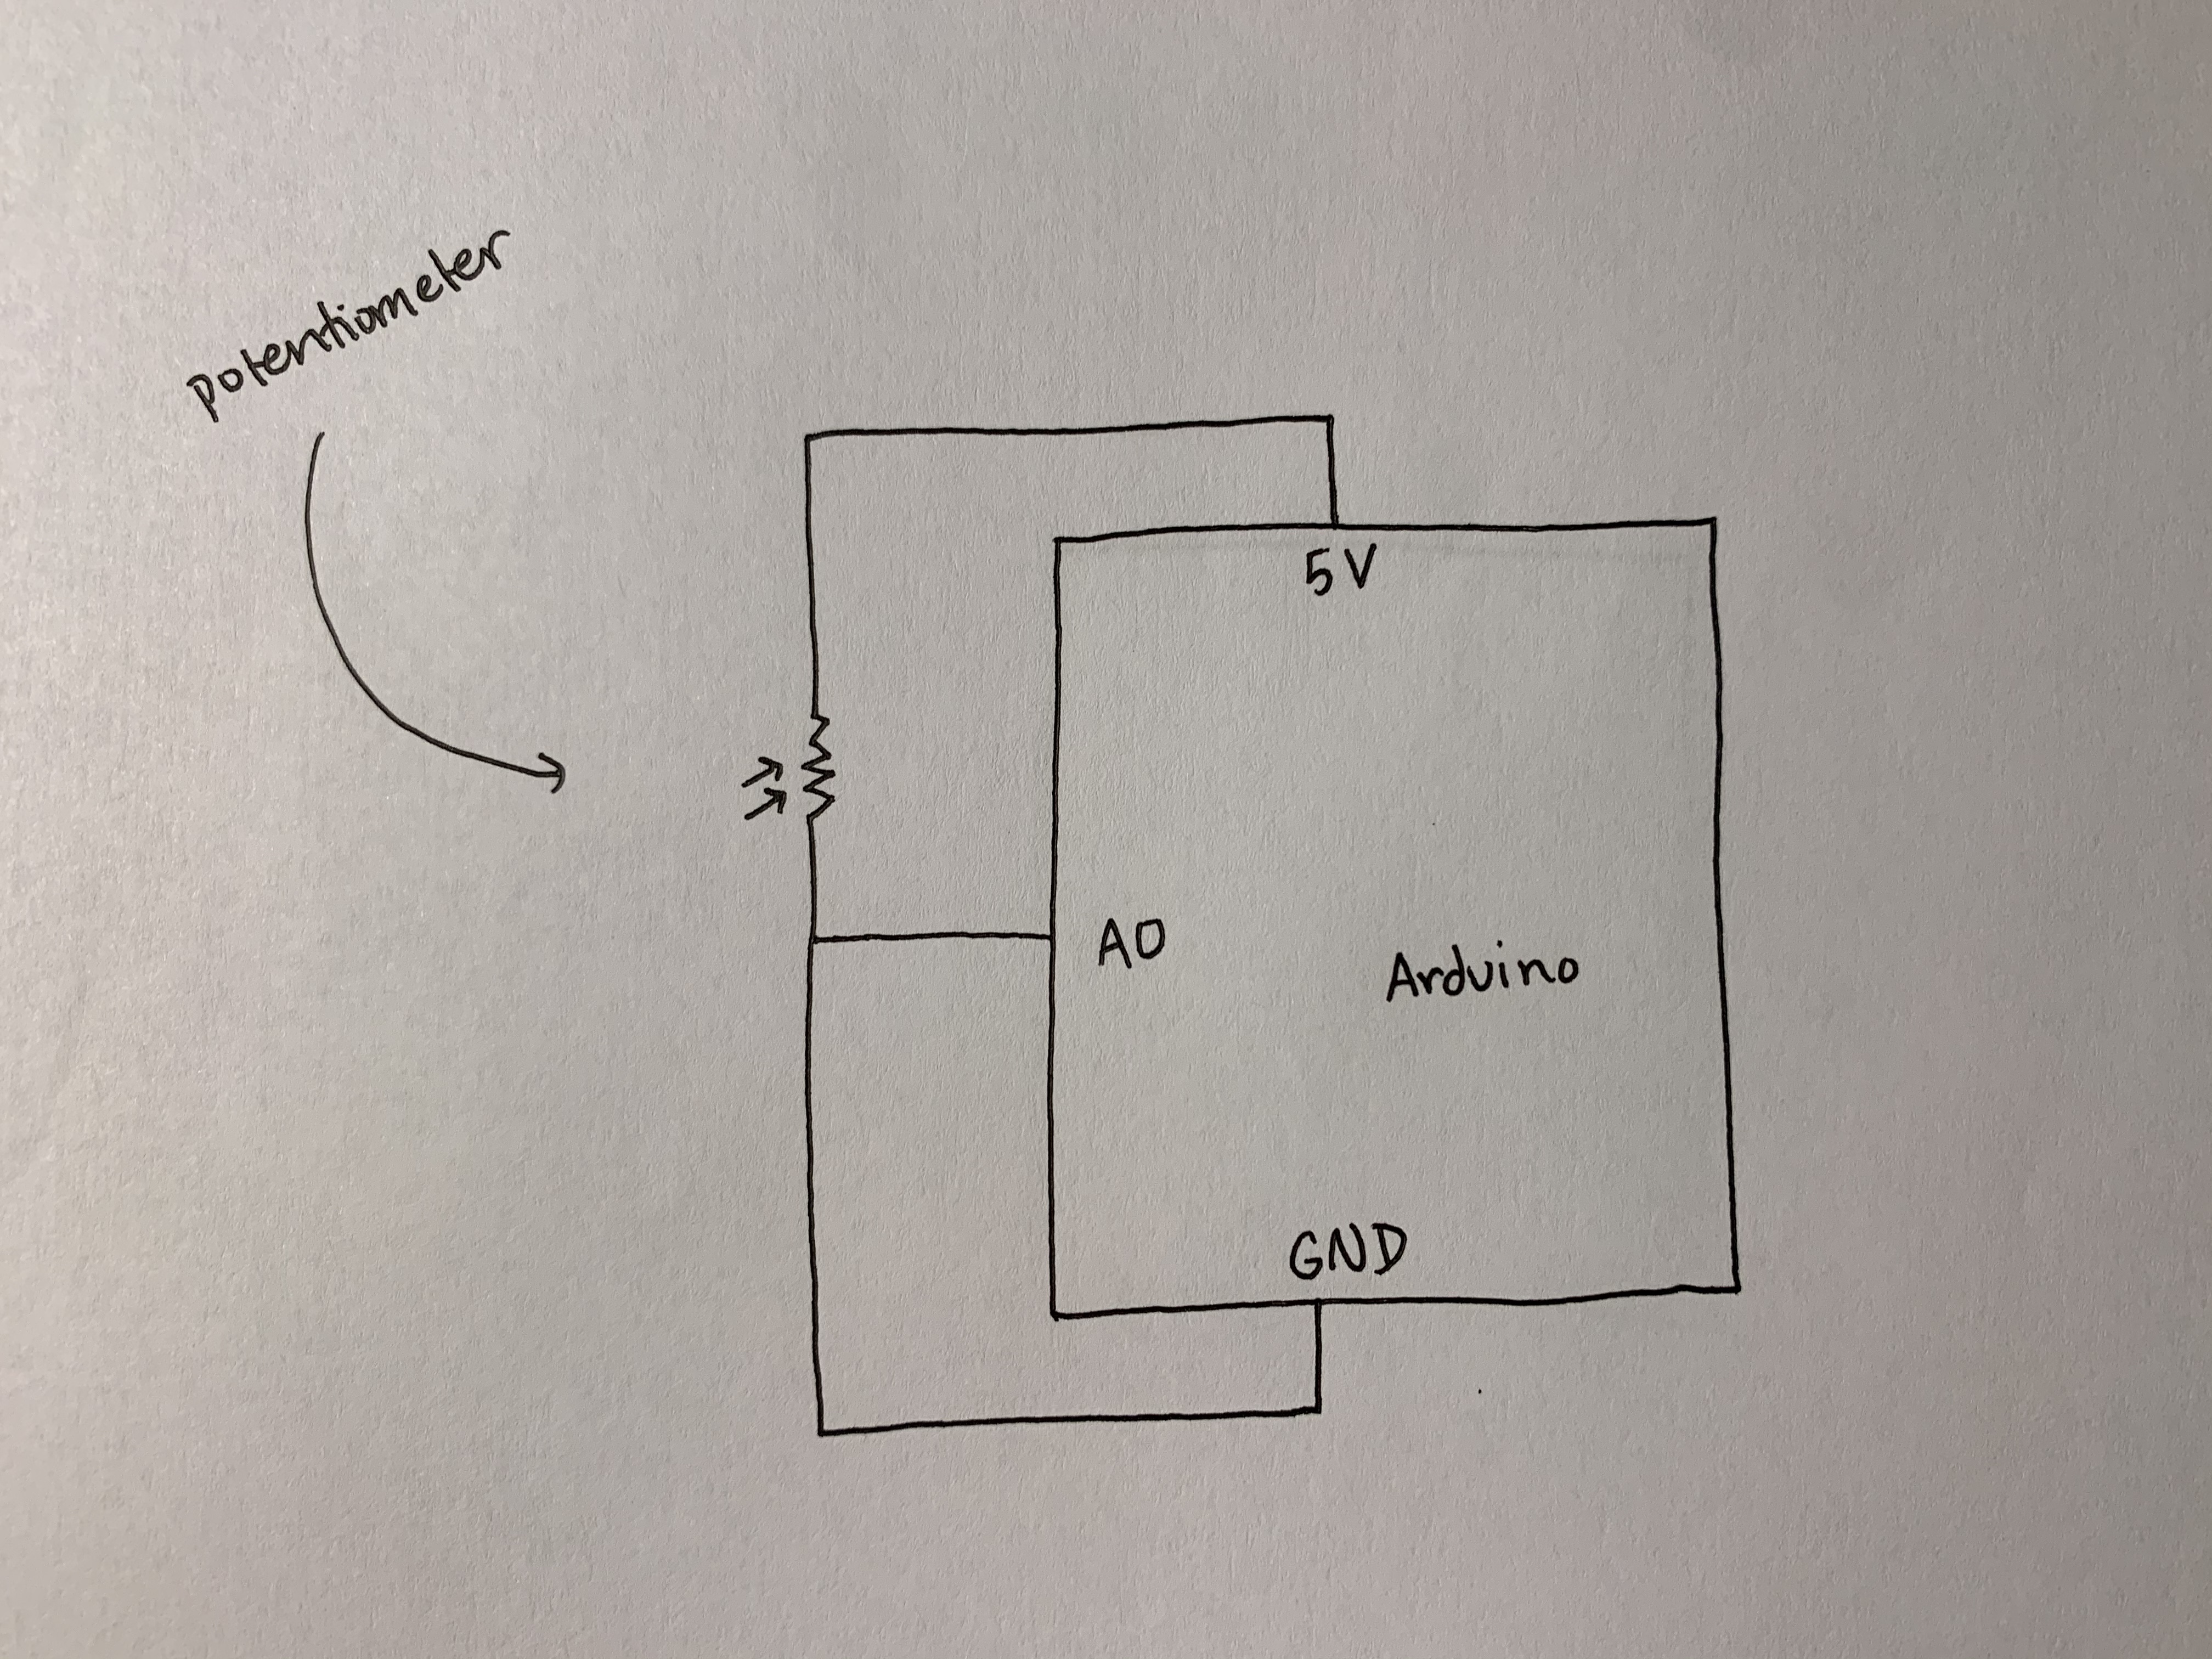 potentiometer
5V
A0
Arduino
GND